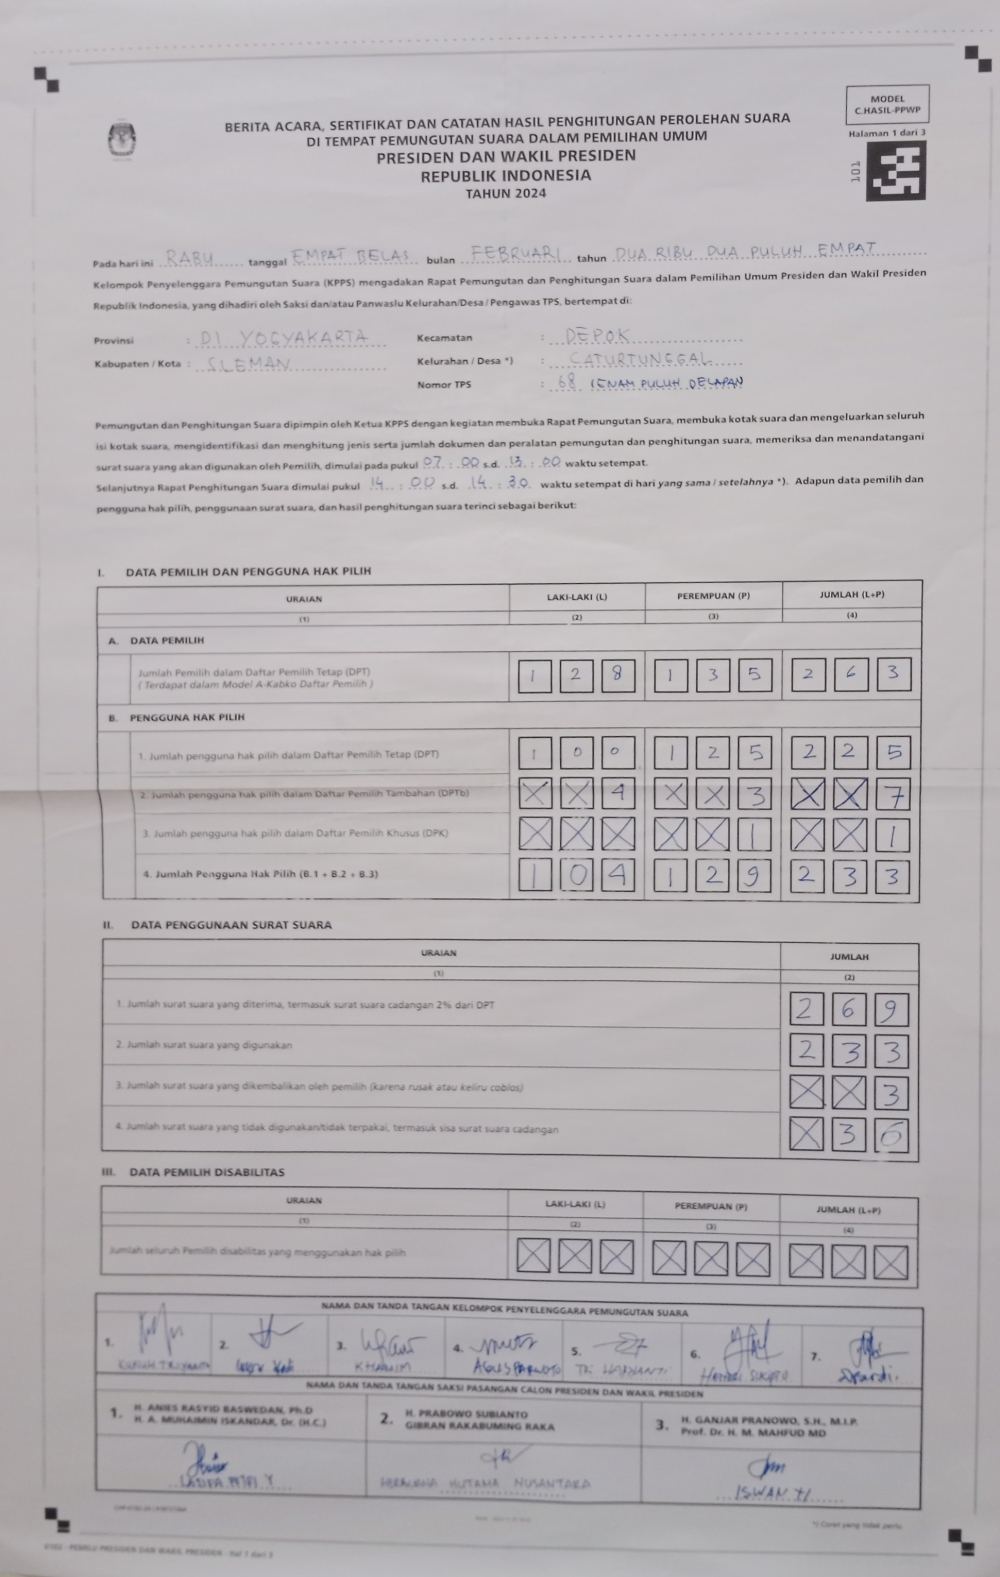 MODEL
C.HASIL-PPWP
Halaman 1 dari 3
101
BERITA ACARA, SERTIFIKAT DAN CATATAN HASIL PENGHITUNGAN PEROLEHAN SUARA
DI TEMPAT PEMUNGUTAN SUARA DALAM PEMILIHAN UMUM
PRESIDEN DAN WAKIL PRESIDEN
REPUBLIK INDONESIA
TAHUN 2024
Pada hari ini RABU tanggal EMPAT BELAS bulan FEBRUARI tahun DUA RIBU DUA PULUH EMPAT
Kelompok Penyelenggara Pemungutan Suara (KPPS) mengadakan Rapat Pemungutan dan Penghitungan Suara dalam Pemilihan Umum Presiden dan Wakil Presiden
Republik Indonesia, yang dihadiri oleh Saksi dan/atau Panwaslu Kelurahan/Desa / Pengawas TPS, bertempat di:
Provinsi : DI YOGYAKARTA Kecamatan : DEPOK
Kabupaten / Kota : SLEMAN Kelurahan / Desa *) : CATURTUNGGAL
Nomor TPS : 68 (ENAM PULUH DELAPAN
Pemungutan dan Penghitungan Suara dipimpin oleh Ketua KPPS dengan kegiatan membuka Rapat Pemungutan Suara, membuka kotak suara dan mengeluarkan seluruh
isi kotak suara, mengidentifikasi dan menghitung jenis serta jumlah dokumen dan peralatan pemungutan dan penghitungan suara, memeriksa dan menandatangani
surat suara yang akan digunakan oleh Pemilih, dimulai pada pukul 07 : 00 s.d. 13 : 00 waktu setempat.
Selanjutnya Rapat Penghitungan Suara dimulai pukul 14 : 00 s.d. 14 : 30 waktu setempat di hari yang sama / setelahnya *). Adapun data pemilih dan
pengguna hak pilih, penggunaan surat suara, dan hasil penghitungan suara terinci sebagai berikut:
I. DATA PEMILIH DAN PENGGUNA HAK PILIH
URAIAN LAKI-LAKI (L) PEREMPUAN (P) JUMLAH (L+P)
(1) (2) (3) (4)
A. DATA PEMILIH
Jumlah Pemilih dalam Daftar Pemilih Tetap (DPT) 1 2 8 1 3 5 2 6 3
( Terdapat dalam Model A-Kabko Daftar Pemilih )
B. PENGGUNA HAK PILIH
1. Jumlah pengguna hak pilih dalam Daftar Pemilih Tetap (DPT) 1 0 0 1 2 5 2 2 5
2. Jumlah pengguna hak pilih dalam Daftar Pemilih Tambahan (DPTb) X X 4 X X 3 X X 7
3. Jumlah pengguna hak pilih dalam Daftar Pemilih Khusus (DPK) X X X X X 1 X X 1
4. Jumlah Pengguna Hak Pilih (B.1 + B.2 + B.3) 1 0 4 1 2 9 2 3 3
II. DATA PENGGUNAAN SURAT SUARA
URAIAN JUMLAH
(1) (2)
1. Jumlah surat suara yang diterima, termasuk surat suara cadangan 2% dari DPT 2 6 9
2. Jumlah surat suara yang digunakan 2 3 3
3. Jumlah surat suara yang dikembalikan oleh pemilih (karena rusak atau keliru coblos) X X 3
4. Jumlah surat suara yang tidak digunakan/tidak terpakai, termasuk sisa surat suara cadangan X 3 6
III. DATA PEMILIH DISABILITAS
URAIAN LAKI-LAKI (L) PEREMPUAN (P) JUMLAH (L+P)
(1) (2) (3) (4)
Jumlah seluruh Pemilih disabilitas yang menggunakan hak pilih X X X X X X X X X
NAMA DAN TANDA TANGAN KELOMPOK PENYELENGGARA PEMUNGUTAN SUARA
1. 2. 3. 4. 5. 6. 7.
NAMA DAN TANDA TANGAN SAKSI PASANGAN CALON PRESIDEN DAN WAKIL PRESIDEN
1. H. ANIES RASYID BASWEDAN, Ph.D
H. A. MUHAIMIN ISKANDAR, Dr. (H.C.)
2. H. PRABOWO SUBIANTO
GIBRAN RAKABUMING RAKA
3. H. GANJAR PRANOWO, S.H., M.I.P.
Prof. Dr. H. M. MAHFUD MD
HUTAMA NUSANTARA
ISWAN
*) Coret yang tidak perlu
0102 - PEMILU PRESIDEN DAN WAKIL PRESIDEN - Hal 1 dari 3